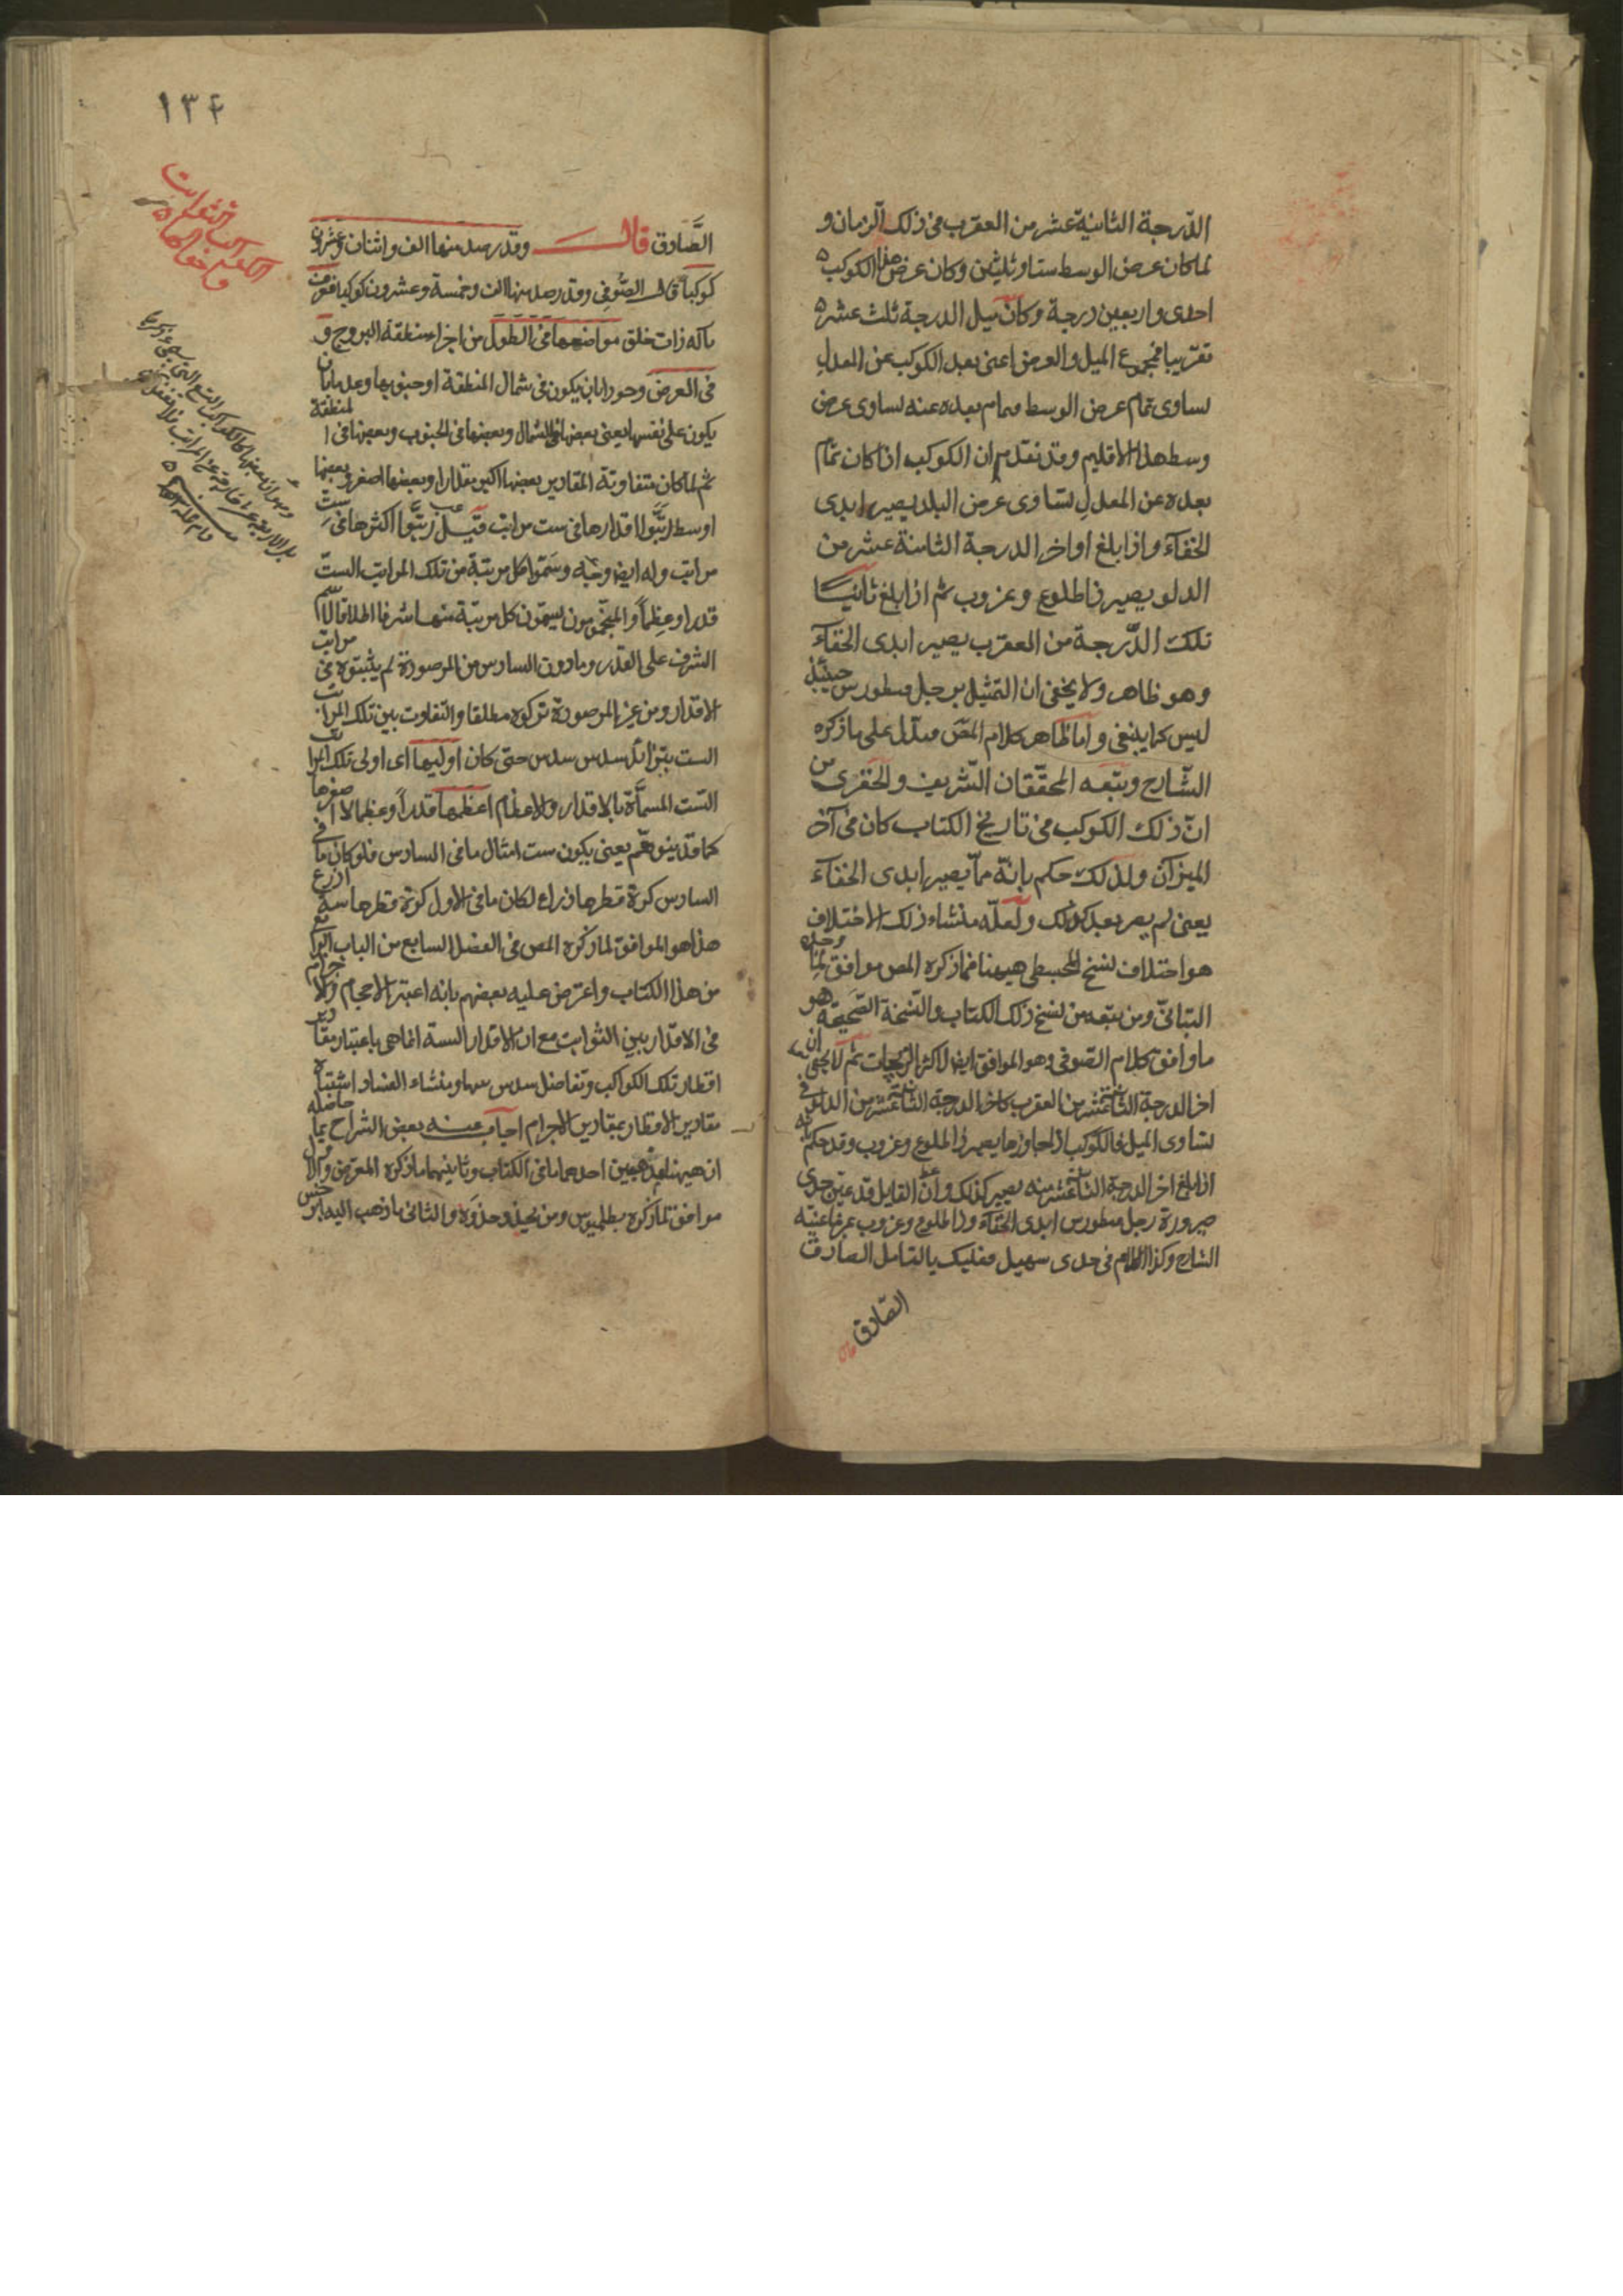 الدّرجة الثانية عشر من العقرب فى ذلك الزمان و
لما كان عرض الوسط ستا وثلثين وكان عرض هذا الكوكب
احدى واربعين درجة وكان ميل الدرجة ثلث عشرة
تقريبا فمجموع الميل والعرض اعنى بعد الكوكب عن المعدل
يساوى تمام عرض الوسط وتمام بعده عنه يساوى عرض
وسط هذا الاقليم وقد تقدم ان الكوكب اذا كان تمام
بعده عن المعدل يساوى عرض البلد يصير ابدى
الخفآء واذا بلغ اواخر الدرجة الثامنة عشر من
الدلو يصير ذا طلوع وغروب ثم اذا بلغ ثانيًا
تلك الدّرجة من العقرب يصير ابدى الخفآء
وهو ظاهر ولا يخفى ان التمثيل برجل قنطورس حينئذ
ليس كما ينبغى واما ظاهر كلام المصّ فيدل على ما ذكره
الشّارح وتبعه المحقّقان الشّريف والخفرى من
انّ ذلك الكوكب فى تاريخ الكتاب كان فى آخر
الميزان ولذلك حكم بانّه ممّا يصير ابدى الخفآء
يعنى لم يصر بعد كذلك ولعلّه منشاء ذلك الاختلاف
هو اختلاف نسخ المجسطى هيهنا فما ذكره المص موافق لما وجده
البتانىّ ومن تبعه من نسخ ذلك الكتاب والنّسخة الصّحيحة هو
ما وافق كلام الصّوفى وهو الموافق ايضا لاكثر الزيجات ثم لا يخفى ان
اخر الدرجة الثانية عشر من العقرب كاخر الدرجة الثامنة عشر من الدلو فى
تساوى الميل فالكوكب اذا جاوزها يصير ذا طلوع وغروب وقد حكم بانه
اذا بلغ اخر الدرجة الثامنة عشر منه يصير كذلك وان القايل قد عين حدى
صيرورة رجل قنطورس ابدى الخفآء وذا طلوع وغروب بما عينه
الشارح وكذا الكلام فى حدى سهيل فعليك بالتامل الصادق
الصّادق
قال
١٣٤
الصَّادق قال وقد رصد منها الف واثنان وعشرون
كوكباً قال الصُّوفى وقد رصد منها الف وخمسة وعشرون كوكبا فعرف
بآلة ذات حلق مواضعها فى الطول من اجزاء منطقة البروج و
فى العرض وجودا بان يكون فى شمال المنطقة او جنوبها وعدما بان
يكون على نفسها يعنى بعضها فى الشمال وبعضها فى الجنوب وبعضها فى المنطقة
ثم لما كان متفاوتة المقادير بعضها اكبر مقدارا وبعضها اصغر وبعضها
اوسط رتّبوا اقدارها فى ست مراتب قيل رتّبوا اكثرها فى ستّ
مراتب وله ايضا وجه وسمّوا كل مرتبة من تلك المراتب الستّ
قدرا وعِظماً والمنجّمون يسمّون كل مرتبة منها شرفا اطلاقا لاسم
الشرف على القدر وما دون السادس من المرصودة لم يثبتوه فى مراتب
الاقدار ومن غير المرصودة تركوه مطلقا والتفاوت بين تلك المراتب
الست بتزائد سدس سدس حتى كان اوليها اى اولى تلك المراتب
السّت المسمّاة بالاقدار والاعظام اعظمها قدراً وعظما لا اصغرها
كما قد يتوهّم يعنى يكون ست امثال ما فى السادس فلو كان ما فى
السادس كرة قطرها ذراع لكان ما فى الاول كرة قطرها ستة اذرع
هذا هو الموافق لما ذكره المص فى الفصل السابع من الباب الرابع
من هذا الكتاب واعترض عليه بعضهم بانه اعتبر الاحجام والاجرام
فى الاقدار بين الثوابت مع ان الاقدار الستة انما هى باعتبار مقادير
اقطار تلك الكواكب وتفاضل سدس سها ومنشاء الفساد اشتباه
مقادير الاقطار بمقادير الاجرام اجاب عنه بعض الشراح بما حاصله
ان هيهنا مذهبين احدهما ما فى الكتاب وثانيهما ما ذكره المعترض والاول
موافق لما ذكره بطلميوس ومن يحذو حذوه والثانى ما ذهب اليه ابرخس